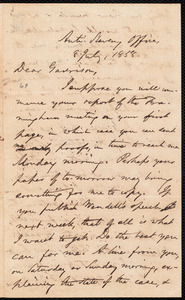 Anti Slavery Office,
8 July, 1858.
Dear Garrison,
I suppose you will com-
mence your report of the Fra-
mingham meeting on your first
page, in which case you can send
proofs, in time to reach me
Monday morning. Perhaps your
paper of to-morrow may bring
something for me to copy. If
you publish Wendell's speech
next week, that of all is what
I want to get. Do the best you
can for me. A line from you,
on Saturday or Sunday morning, ex-
plaining the state of the case, &